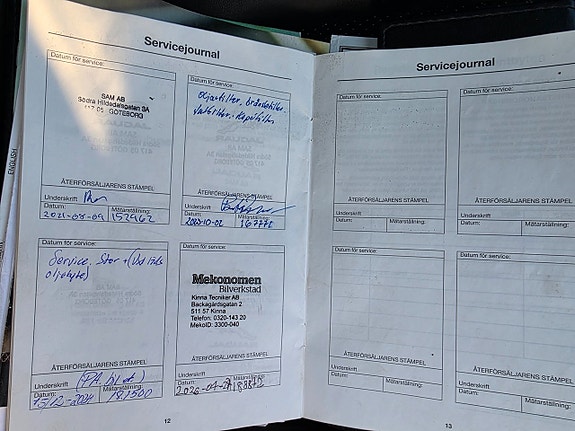 ENGLISH
Servicejournal
Datum för service:
SAM AB
Södra Hildedalsgatan 3A
417 05 GÖTEBORG
ÅTERFÖRSÄLJARENS STÄMPEL
Underskrift
Datum: Mätarställning:
2021-08-09 152962
Datum för service:
Oljefilter, bränslefilter,
luftfilter, kupéfilter
ÅTERFÖRSÄLJARENS STÄMPEL
Underskrift
Datum: Mätarställning:
2023-10-02
Datum för service:
Service. Stor + (Vid
oljebyte)
ÅTERFÖRSÄLJARENS STÄMPEL
Underskrift
Datum: Mätarställning:
15/12-2024 181500
Datum för service:
Mekonomen
Bilverkstad
Kinna Tecniker AB
Backagårdsgatan 2
511 57 Kinna
Telefon: 0320-143 20
MekoID: 3300-040
ÅTERFÖRSÄLJARENS STÄMPEL
Underskrift
Datum: Mätarställning:
12
Servicejournal
Datum för service:
ÅTERFÖRSÄLJARENS STÄMPEL
Underskrift
Datum: Mätarställning:
Datum för service:
ÅTERFÖRSÄLJARENS STÄMPEL
Underskrift
Datum: Mätarställning:
Datum för service:
ÅTERFÖRSÄLJARENS STÄMPEL
Underskrift
Datum: Mätarställning:
Datum för service:
ÅTERFÖRSÄLJARENS STÄMPEL
Underskrift
Datum: Mätarställning:
13